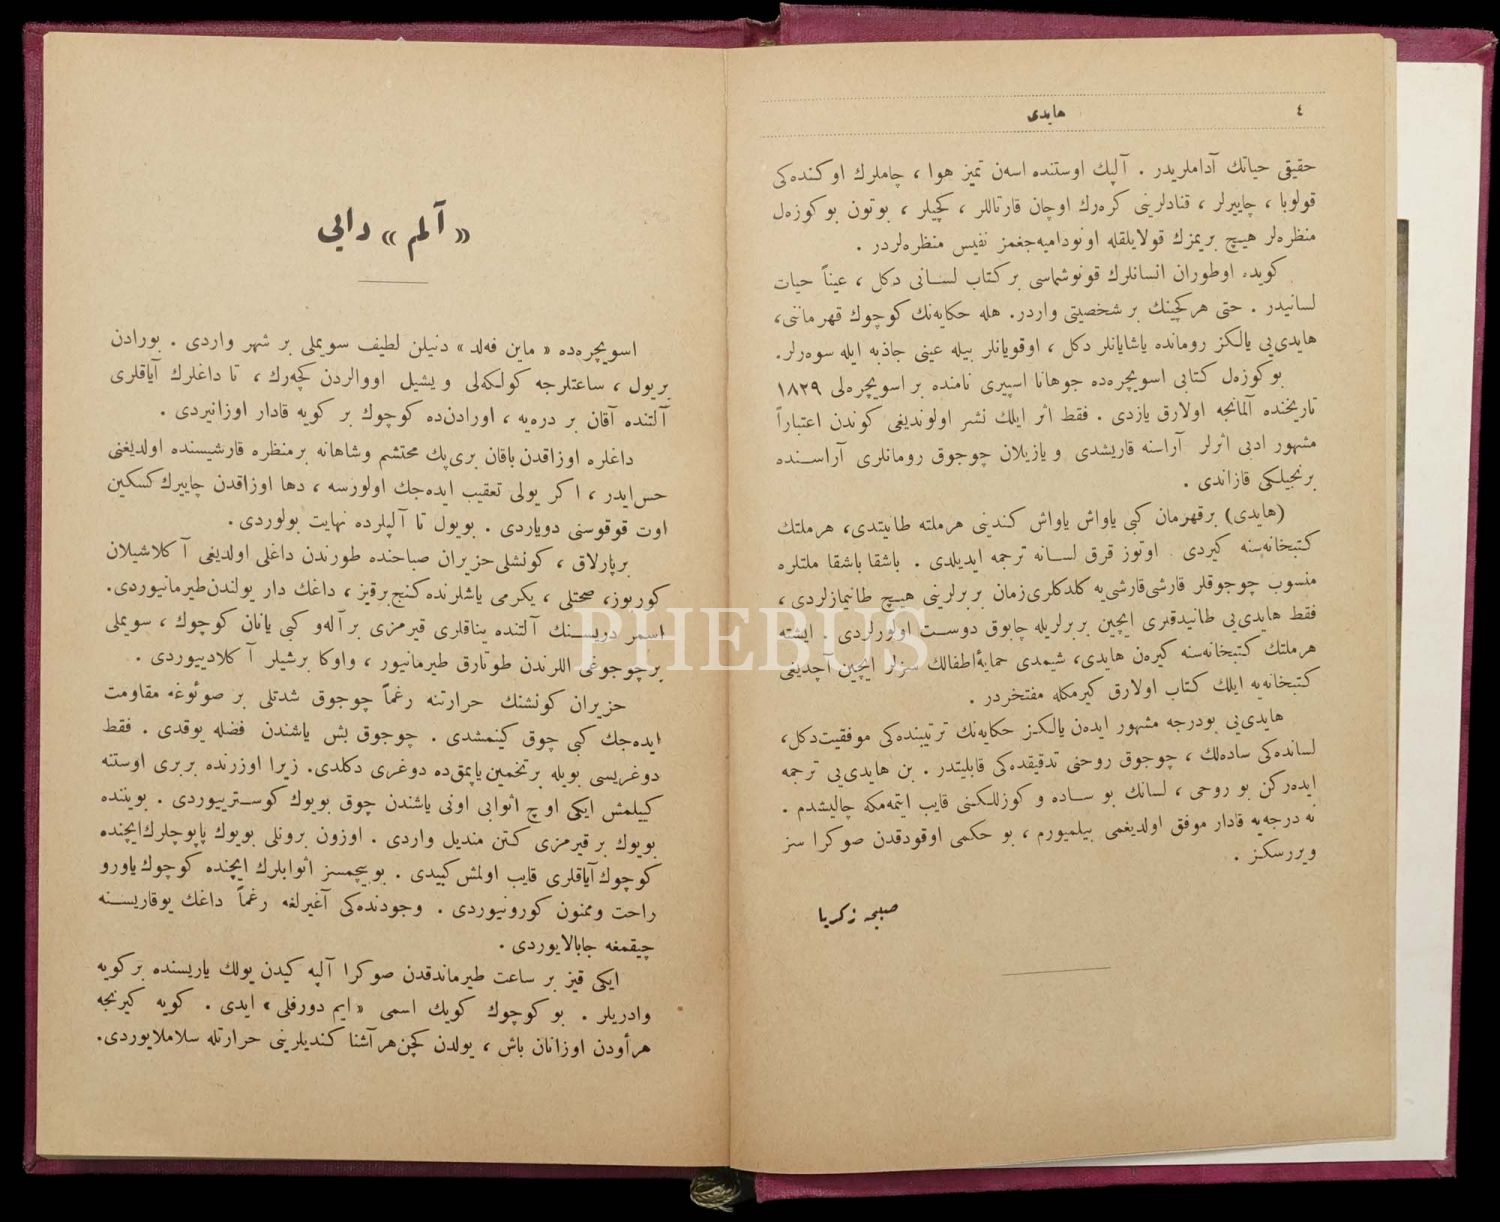 ٤
هایدی
حقیقی حیاتك آداملریدر . آلپك اوستنده اسه‌ن تمیز هوا ، چاملرك اوكنده‌كی
قولوبا ، چاییرلر ، قنادلرینی كره‌رك اوچان قارتاللر ، كچیلر ، بوتون بو كوزه‌ل
منظره‌لر هیچ بریمزك قولایلقله اونودامیه‌جغمز نفیس منظره‌لردر .
كویده اوطوران انسانلرك قونوشماسی بر كتاب لسانی دكل ، عیناً حیات
لسانیدر . حتی هر كچینك بر شخصیتی واردر. هله حكایه‌نك كوچوك قهرماننی،
هایدی‌یی یالكز رومانده یاشایانلر دكل ، اوقویانلر بیله عینی جاذبه ایله سوه‌رلر.
بو كوزه‌ل كتابی اسویچره‌ده جوهانا اسپیری نامنده بر اسویچره‌لی ١٨٢٩
تاریخنده آلمانجه اولارق یازدی . فقط اثر ایلك نشر اولوندیغی كوندن اعتباراً
مشهور ادبی اثرلر آراسنه قاریشدی و یازیلان چوجوق رومانلری آراسنده
برنجیلكی قازاندی .
(هایدی) بر قهرمان كبی یاواش یاواش كندینی هر ملته طانیتدی، هر ملتك
كتبخانه‌سنه كیردی . اوتوز قرق لسانه ترجمه ایدیلدی . باشقا باشقا ملتلره
منسوب چوجوقلر قارشی قارشی‌یه كلدكلری زمان بربرلرینی هیچ طانیمازلردی ،
فقط هایدی‌یی طانیدقلری ایچین بربرلریله چابوق دوست اولورلردی . ایشته
هر ملتك كتبخانه‌سنه كیره‌ن هایدی، شیمدی حمایهٔ اطفالك سزلر ایچین آچدیغی
كتبخانه‌یه ایلك كتاب اولارق كیرمكله مفتخردر .
هایدی‌یی بودرجه مشهور ایده‌ن یالكز حكایه‌نك ترتیبنده‌كی موفقیت دكل،
لسانده‌كی ساده‌لك ، چوجوق روحنی تدقیقده‌كی قابلیتدر . بن هایدی‌یی ترجمه
ایده‌ركن بو روحی ، لسانك بو ساده و كوزللكنی قایب ایتمه‌مكه چالیشدم .
نه درجه‌یه قادار موفق اولدیغمی بیلمیورم ، بو حكمی اوقودقدن صوكرا سز
ویررسكز .
صبیحه زكریا
« آلم » دایی
اسویچره‌ده « ماین فه‌لد » دنیلن لطیف سویملی بر شهر واردی . بورادن
بر یول ، ساعتلرجه كولكه‌لی و یشیل اووالردن كچه‌رك ، تا داغلرك آیاقلری
آلتنده آقان بر دره‌یه ، اورادن‌ده كوچوك بر كویه قادار اوزانیردی .
داغلره اوزاقدن باقان بری پك محتشم وشاهانه بر منظره قارشیسنده اولدیغنی
حس ایدر ، اكر یولی تعقیب ایده‌جك اولورسه ، دها اوزاقدن چاییرك كسكین
اوت قوقوسنی دویاردی . بویول تا آلپلرده نهایت بولوردی .
بر پارلاق ، كونشلی حزیران صباحنده طورندن داغلی اولدیغی آ كلاشیلان
كوربوز، صحتلی ، یكرمی یاشلرنده كنج بر قیز ، داغك دار یولندن طیرمانیوردی.
اسمر دریسنك آلتنده یناقلری قیرمزی بر آله‌و كبی یانان كوچوك ، سویملی
بر چوجوغی اللرندن طوتارق طیرمانیور ، واوكا بر شیلر آ كلادییوردی .
حزیران كونشنك حرارتنه رغماً چوجوق شدتلی بر صوئوغه مقاومت
ایده‌جك كبی چوق كینمشدی . چوجوق بش یاشندن فضله یوقدی . فقط
دوغریسی بویله بر تخمین یاپمق‌ده دوغری دكلدی. زیرا اوزرنده بربری اوستنه
كییلمش ایكی اوچ اثوابی اونی یاشندن چوق بویوك كوستریيوردی . بویننده
بویوك بر قیرمزی كتن مندیل واردی . اوزون برونلی بویوك پاپوچلرك ایچنده
كوچوك آیاقلری قایب اولمش كبیدی . بو بیچمسز اثوابلرك ایچنده كوچوك یاورو
راحت وممنون كورونیوردی . وجودنده‌كی آغیرلغه رغماً داغك یوقاریسنه
چیقمغه جابالایوردی .
ایكی قیز بر ساعت طیرماندقدن صوكرا آلپه كیدن یولك یاریسنده بر كویه
واردیلر . بو كوچوك كویك اسمی « ایم دورفلی » ایدی . كویه كیرنجه
هر أودن اوزانان باش ، یولدن كچن هر آشنا كندیلرینی حرارتله سلاملایوردی.
PHEBUS